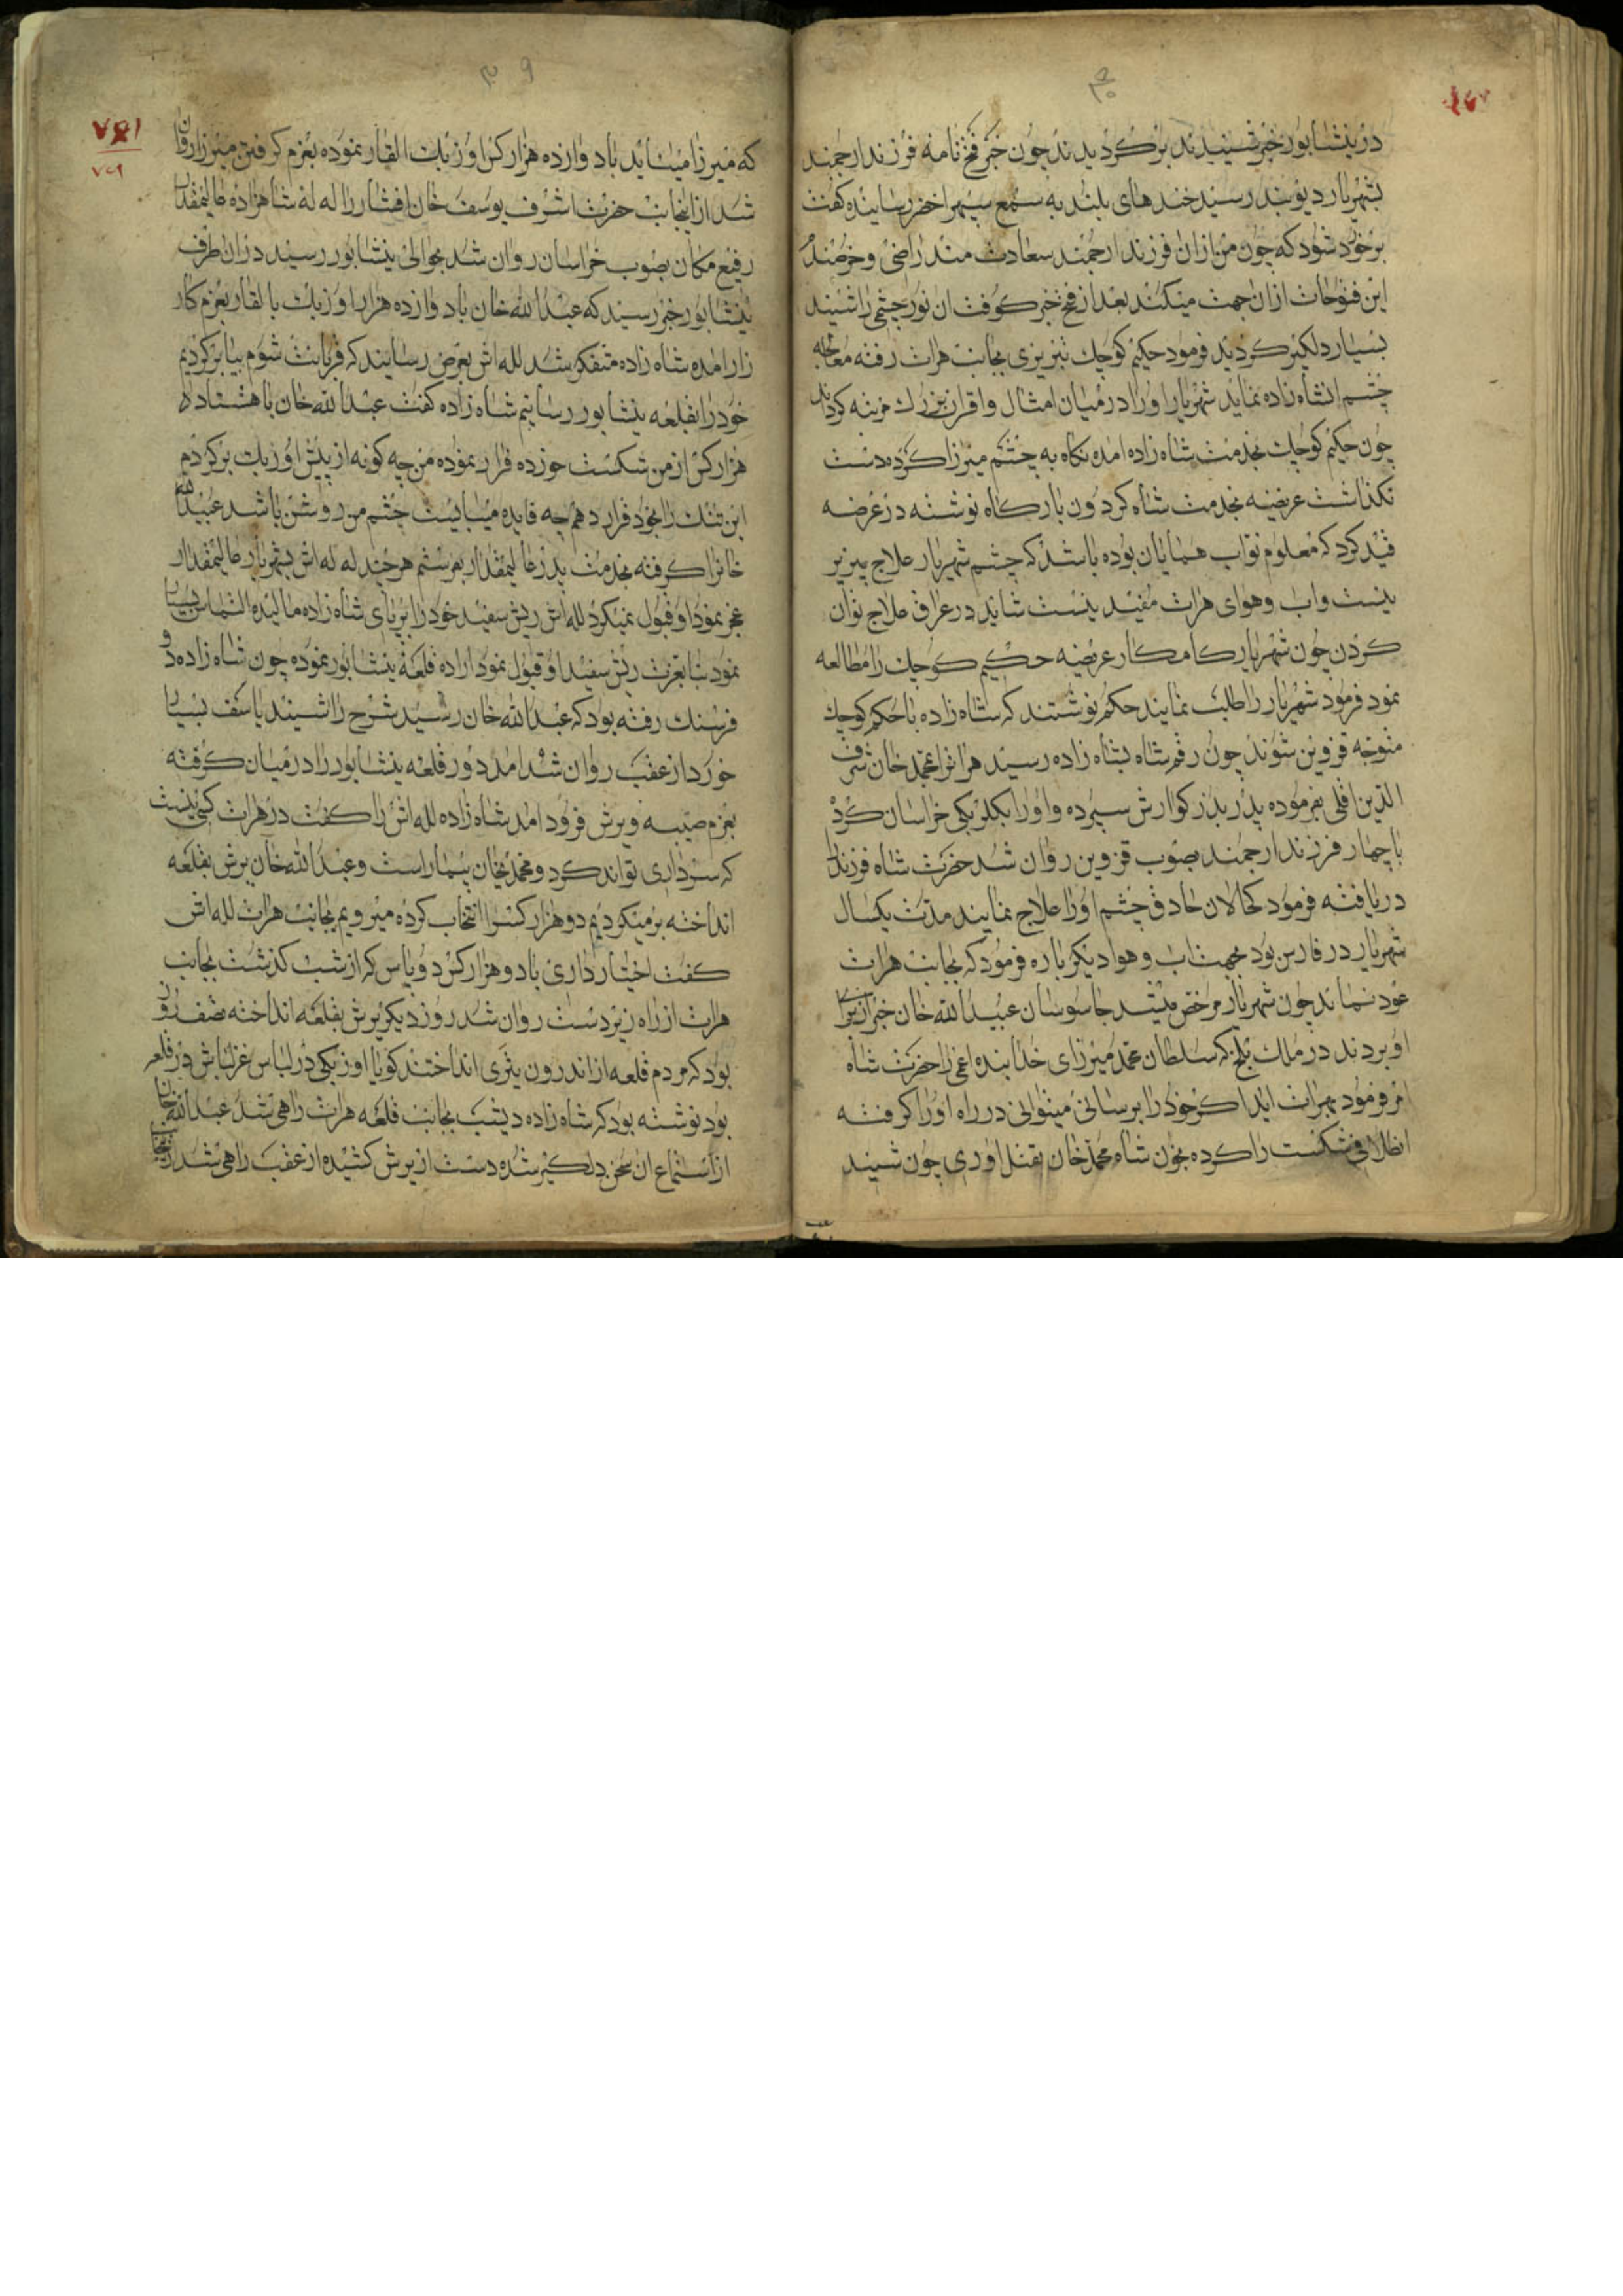 در نیشابور خبر شنیدند برگردیدند چون خبر فتح نامه فرزند ارجمند
بشهریار دیوبند رسید خندهای بلند به سمع سپهر اخضر رسانیده گفت
برخود شود که چون من ازان فرزند ارجمند سعادت مند راضی و خرسند
این فتوحات ازان جهت میکند بعد از فتح خبر کوفت ان نور چشمی را شنید
بسیار دلکیر کردید فرمود حکیم کوچک تبریزی بجانب هرات رفته معالجه
چشم انشاه زاده نماید شهریار او را در میان امثال و اقران بزرك مرتبه کرداند
چون حکیم کوچک بخدمت شاه زاده امده نکاه به چشم میرزا کرده دست
نکذاشت عریضه بخدمت شاه کردون بارکاه نوشته در عرضه
قید کرد که معلوم نواب همایان بوده باشد که چشم شهریار علاج پذیر
نیست و اب و هوای هرات مفید نیست شاید در عراق علاج توان
کردن چون شهریار کامکار عریضه حکیم کوچک را مطالعه
نمود فرمود شهریار را طلب نمایند حکم نوشتند که شاه زاده با حکیم کوچک
متوجه قزوین شوند چون رقم شاه بشاه زاده رسید هراترا بمحمد خان شرف
الدین اقلی بفرموده پدر بزرکوارش سپرده و او را بکلربکی خراسان کرد
با چهار فرزند ارجمند بصوب قزوین روان شد حضرت شاه فرزند را
دریافته فرمود کحالان حاذق چشم او را علاج نمایند مدت یکسال
شهریار در فارس بود بجهت اب و هوا دیکر باره فرمود که بجانب هرات
عود نماند چون شهریار مرخص میشد جاسوسان عبیدالله خان خبر از برای
او بردند در ملك بلخ که سلطان محمد میرزای خدابنده اعمی را حضرت شاه
امر فرمود بهرات اید اکر خود را برسانی میتوانی در راه او را کرفته
تلافی شکست را کرده بخون شاه محمد خان بقتل اوری چون شنید
که میرزا میاید با دوازده هزار کس اوزبك القار نموده بعزم کرفتن میرزا روان
شد از اینجانب حضرت اشرف یوسف خان افشار را له له شاهزاده عالیمقدار
رفیع مکان بصوب خراسان روان شد بحوالی نیشابور رسید در ان طرف
نیشابور خبر رسید که عبدالله خان با دوازده هزار اوزبك بالقار بعزم کار
زار امده شاه زاده متفکر شد لله اش بعرض رسانید که قربانت شوم بیا برکردیم
خود را بقلعه نیشابور رسانیم شاه زاده کفت عبدالله خان با هشتاد
هزار کس از من شکست خورده فرار نموده من چه کونه از پیش اوزبك برکردم
این ننك را بخود قرار دهم چه فایده میبایست چشم من روشن باشد عبیدالله
خانرا کرفته بخدمت پدر عالیمقدار بفرستم هر چند له له اش بشهریار عالیمقدار
عجز نمود او قبول نمیکرد لله اش ریش سفید خود را بر پای شاه زاده مالیده التماس بسیار
نمود بنا بعزت ریش سفید او قبول نمود اراده قلعه نیشابور نموده چون شاه زاده دو
فرسنك رفته بود که عبدالله خان رسید شرح را شنید تاسف بسیار
خورد از عقب روان شد امد دور قلعه نیشابور را در میان کرفته
بعزم صیبه و یرش فرود امد شاه زاده لله اش را کفت در هرات کسی نیست
که سرداری تواند کرد و محمد خان بیمار است و عبدالله خان یرش بقلعه
انداخته برمیکردیم دو هزار کس را انتخاب کرده میرویم بجانب هرات لله اش
کفت اختیار داری با دو هزار کس دو پاس که از شب کذشت بجانب
هرات از راه زیردست روان شد روز دیکر یرش بقلعه انداخته نصف روز
بود که مردم قلعه از اندرون تیری انداختند کویا اوزبکی در لباس غزلباش در قلعه
بود نوشته بود که شاه زاده دیشب بجانب قلعه هرات راهی شد عبدالله خان
از استماع ان سخن دلکیر شده دست از یرش کشیده از عقب راهی شد